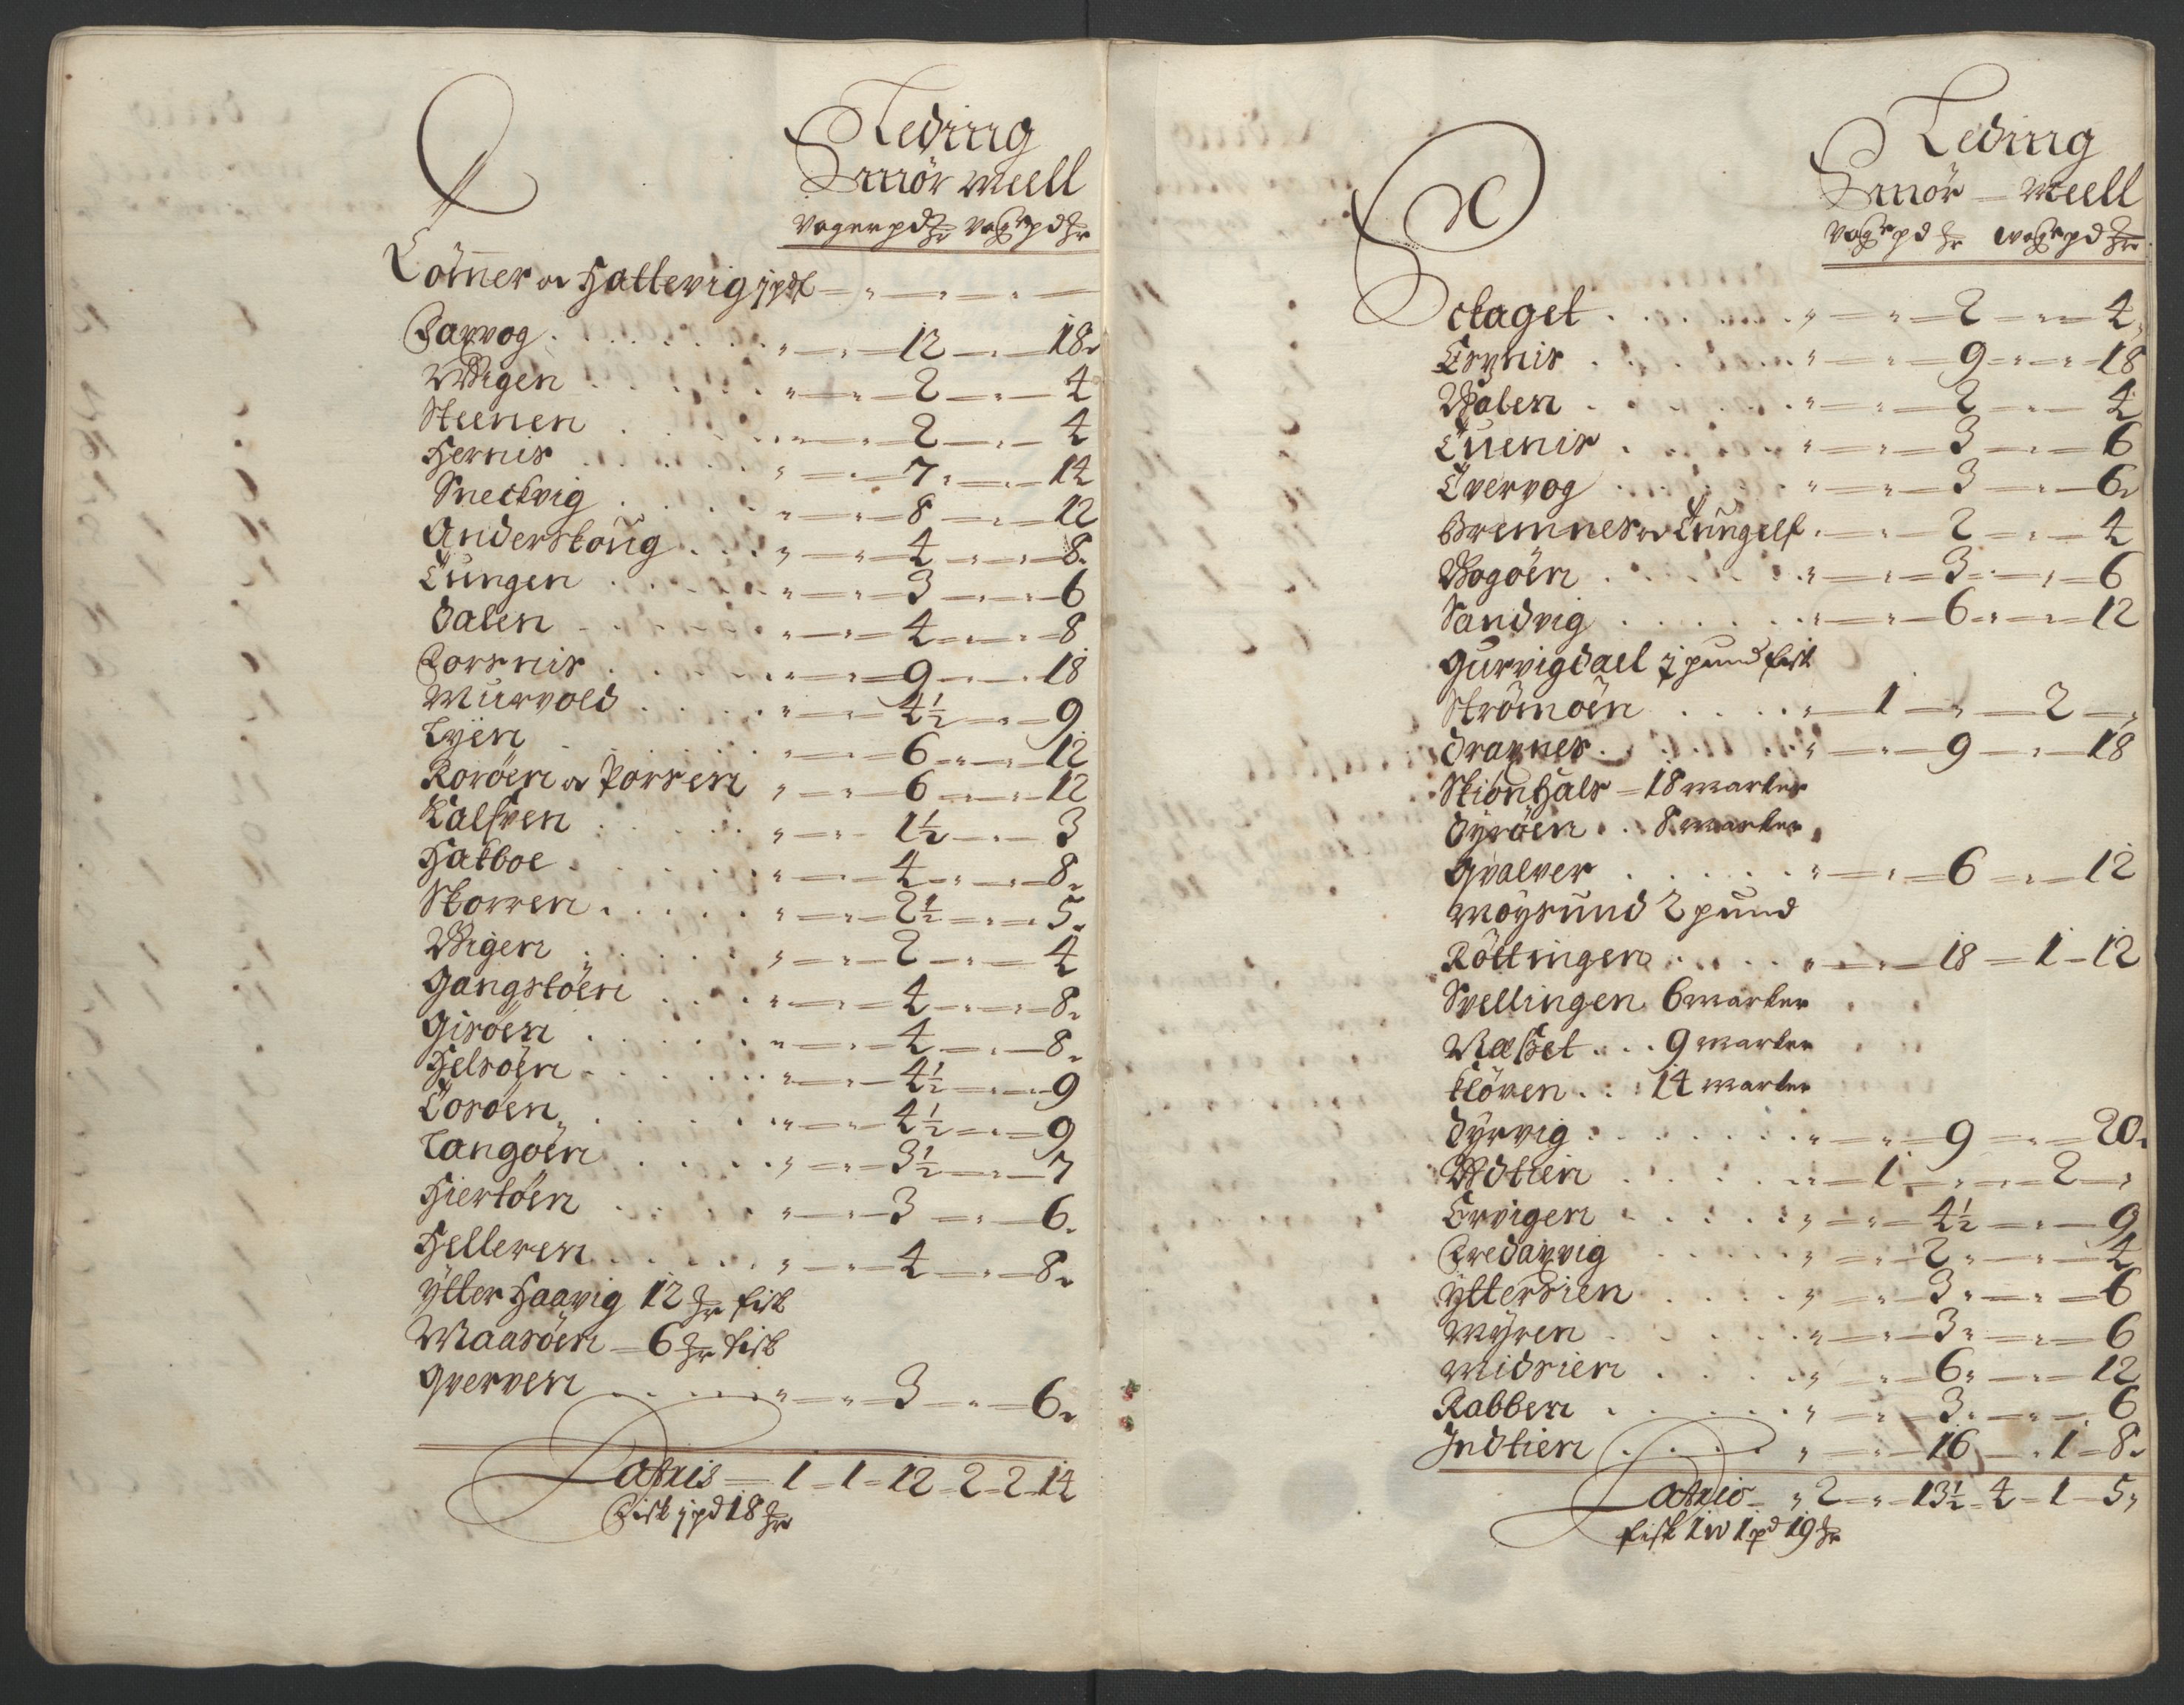 Leding
Smör Meell
Voger pd ℔r Vogr pd ℔r
Lömer oc Hattevig j pd f — " — " — " —
Farvog . . . " — " — 12 — " — 18 "
Wigen . . . " — " — 2 — " — 4
Steenen . . . " — " — 2 — " — 4
Hernis . . . " — " — 7 " — " — 14
Sneckvig . . . " — " — 8 — " — 12
Anderskoug . . . " — " — 4 — " — 8
Tungen . . . " — " — 3 — " — 6
Dalen . . . " — " — 4 — " — 8
Forsnis . . . " — " — 9 — " — 18
Murvold . . . " — " — 4½ — " — 9
Lyen . . . " — " — 6 — " — 12
Roröen oc Porsen " — " — 6 — " — 12
Kalfven . . . " — " — 1½ — " — 3
Hatboe . . . " — " — 4 — " — 8
Skorren . . . " — " — 2½ — " — 5
Wigen . . . " — " — 2 — " — 4
Gangstöen . . . " — " — 4 — " — 8
Gisöen . . . " — " — 4 — " — 8
Helsöen . . . " — " — 4½ — " — 9
Tosöen . . . " — " — 4½ — " — 9
Langöen . . . " — " — 3½ — " — 7
Hiertöen . . . " — " — 3 — " — 6
Helleren . . . " — " — 4 — " — 8
Ytter Haavig 12 ℔r fisk
Maasöen — 6 ℔r fisk
Qverven . . . " — " — 3 — " — 6
Latus — 1 — 1 — 12 — 2 — 2 — 14
Fisk j pd 18 ℔r
Leding
Smör — Meell
Vogr pd ℔r Wogr pd ℔r
Staget . . . " — " — 2 — " — 4
Ervnis . . . " — " — 9 — " — 18
Dalen . . . " — " — 2 — " — 4
Tuenis . . . " — " — 3 — " — 6
Tvervog . . . " — " — 3 — " — 6
Bremnes oc Tungelf . " — " — 2 — " — 4
Vogöen . . . " — " — 3 — " — 6
Sandvig . . . " — " — 6 — " — 12
Gurvigdael j pund fisk
Strömöen . . . " — 1 — " — 2 — "
Dragnes . . . " — " — 9 — " — 18
Skionhals — 18 marker
Dyröen . . 8 marker
Qvalver . . . " — " — 6 — " — 12
Moysund 2 pund
Röttingen . . . " — " — 18 — 1 — 12
Svellingen 6 marker
Wæsset . . . 9 marker
Klöven . . : 14 marker
Dyrvig . . . " — " — 9 — " — 20
Udtien . . . " — 1 — " — 2 — "
Ervigen . . . " — " — 4½ — " — 9
Fredagvig . . . " — " — 2 — " — 4
Yttersien . . . " — " — 3 — " — 6
Myren . . . " — " — 3 — " — 6
Midsien . . . " — " — 6 — " — 12
Rabben . . . " — " — 3 — " — 6
Indtien . . . " — " — 16 — 1 — 8
Latus — " 2 — " — 13½ — 4 — 1 — 5
fisk 1 W 1 pd 19 ℔r